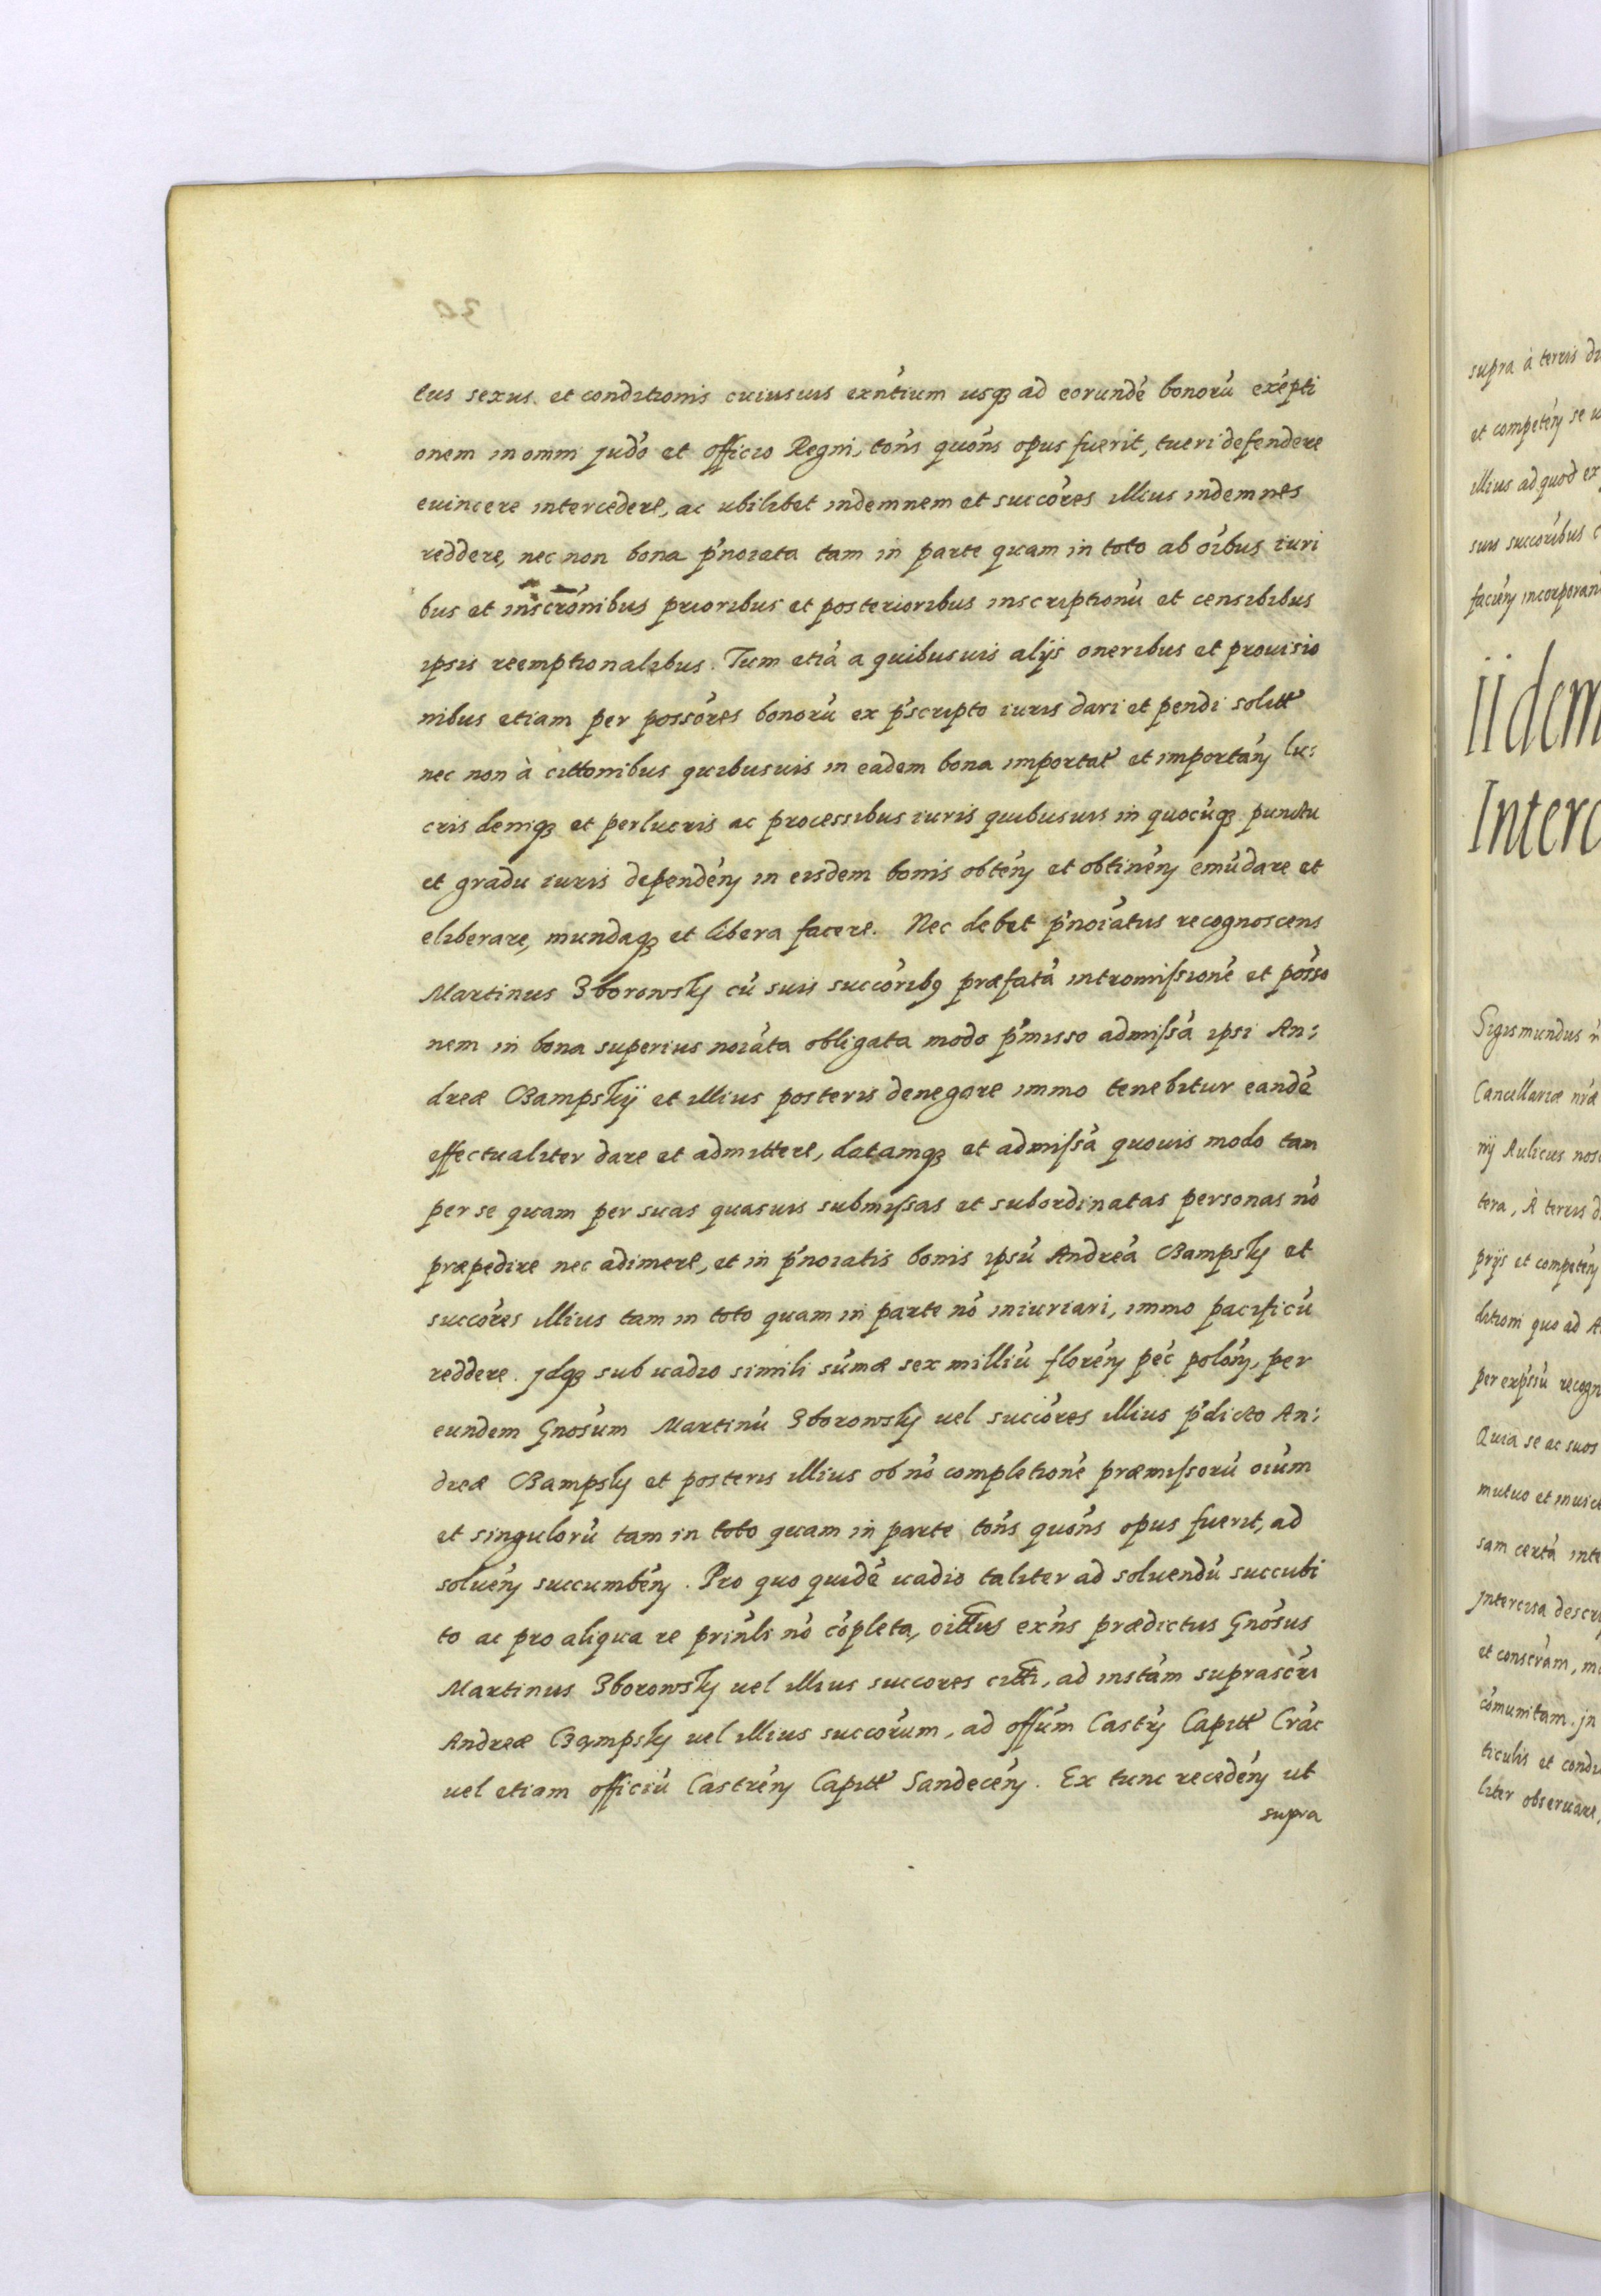 tus sexus et conditionis cuiusuis exńtium usq₃ ad eorundé bonorú exépti
onem in omni judó et officio Regni, tońs quońs opus fuerit, tueri defendere
euincere intercedere, ac ubilibet indemnem et succóres illius indemnes
reddere, nec non bona pńoiata tam in parte quam in toto ab óibus iuri
bus et inscrónibus prioribus et posterioribus inscriptionú et censibibus
ipsis reemptionalibus. Tum etiá a quibusuis alijs oneribus et prouisio
nibus etiam per possóres bonorú ex pśscripto iuris dari et pendi solitt
nec non à cittonibus quibusuis in eadem bona importat et importáń lu:
cris deniq₃ et perlucris ac processibus iuris quibusuis in quocúq₃ punctu
et gradu iuris dependéń in eisdem bonis obtéń et obtinéń emúdare et
eliberare, mundaq₃ et libera facere. Nec debet pńoiátus recognoscens
Martinus Zborowsky cú suis succóribꝯ præfatá intromissioné et pósso
nem in bona superius noiáta obligata modo pŕmisso admissá ipsi An:
dreæ Bampskÿ et illius posteris denegare immo tenebitur eandé
effectualiter dare et admittere, datamq₃ et admissá quouis modo tam
per se quam per suas quasuis submissas et subordinatas personas nó
præpedire nec adimere, et in pńoiatis bonis ipsú Andreá Bampsky et
succóres illius tam in toto quam in parte nó iniuriari, immo pacificú
reddere. jdq₃ sub uadio simili súmæ sex milliú floréń péc polóń, per
eundem Gnósum Martinú Zborowsky uel succóres illius pŕdicto An:
dreæ Bampsky et posteris illius ob nó completioné præmissorú oiúm
et singulorú tam in toto quam in parte tońs quońs opus fuerit, ad
soluéń succumbéń. Pro quo quidé uadio taliter ad soluendú succubi
to ac pro aliqua re prińli nó cópleta, oittus exńs prædictus Gnósus
Martinus Zborowsky uel illius succores citti, ad instám suprascŕi
Andreæ Bampsky uel illius succórum, ad offúm Castrń Capitt Crác
uel etiam officiú Castréń Capitt Sandecéń. Ex tunc recedéń ut
supra
supra à terris
et competéń se
illius ad quod
suis succóribus
faciéń
iidem
Interc
Sigismundus
Cancellariæ nŕæ
nij Aulicus
tera, À terris
prijs et competéń
quo ad
per expŕsú
Quia se ac suos
mutuo et
sam certá
jntercisa
et conscrám,
cómunitam. jn
ticulis et
liter obseruare,